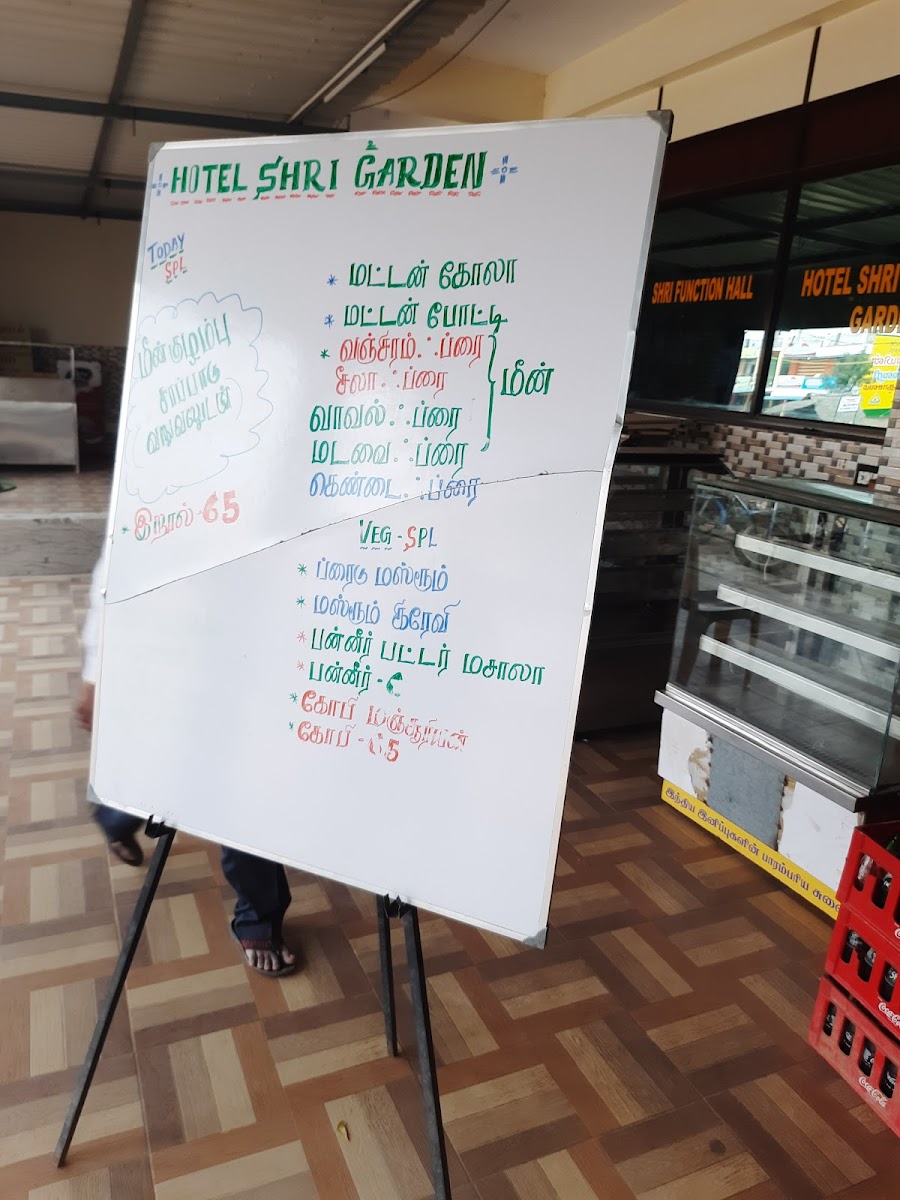 HOTEL SHRI GARDEN
TODAY
SPL
மீன்குழம்பு
சாப்பாடு
வறுவலுடன்
* இறால் - 65
* மட்டன் கோலா
* மட்டன் போட்டி
* வஞ்சரம் ஃப்ரை
சீலா ஃப்ரை
வாவல் ஃப்ரை
மடவை ஃப்ரை
மீன்
கெண்டை ஃப்ரை
VEG - SPL
* ப்ரைடு மஸ்ரூம்
* மஸ்ரூம் கிரேவி
* பன்னீர் பட்டர் மசாலா
* பன்னீர் - 6
* கோபி மஞ்சூரியன்
* கோபி - 65
SHRI FUNCTION HALL
HOTEL SHRI
GARDE
இந்திய இனிப்புகளின் பாரம்பரிய சுவை
Coca-Cola
Coca-Cola